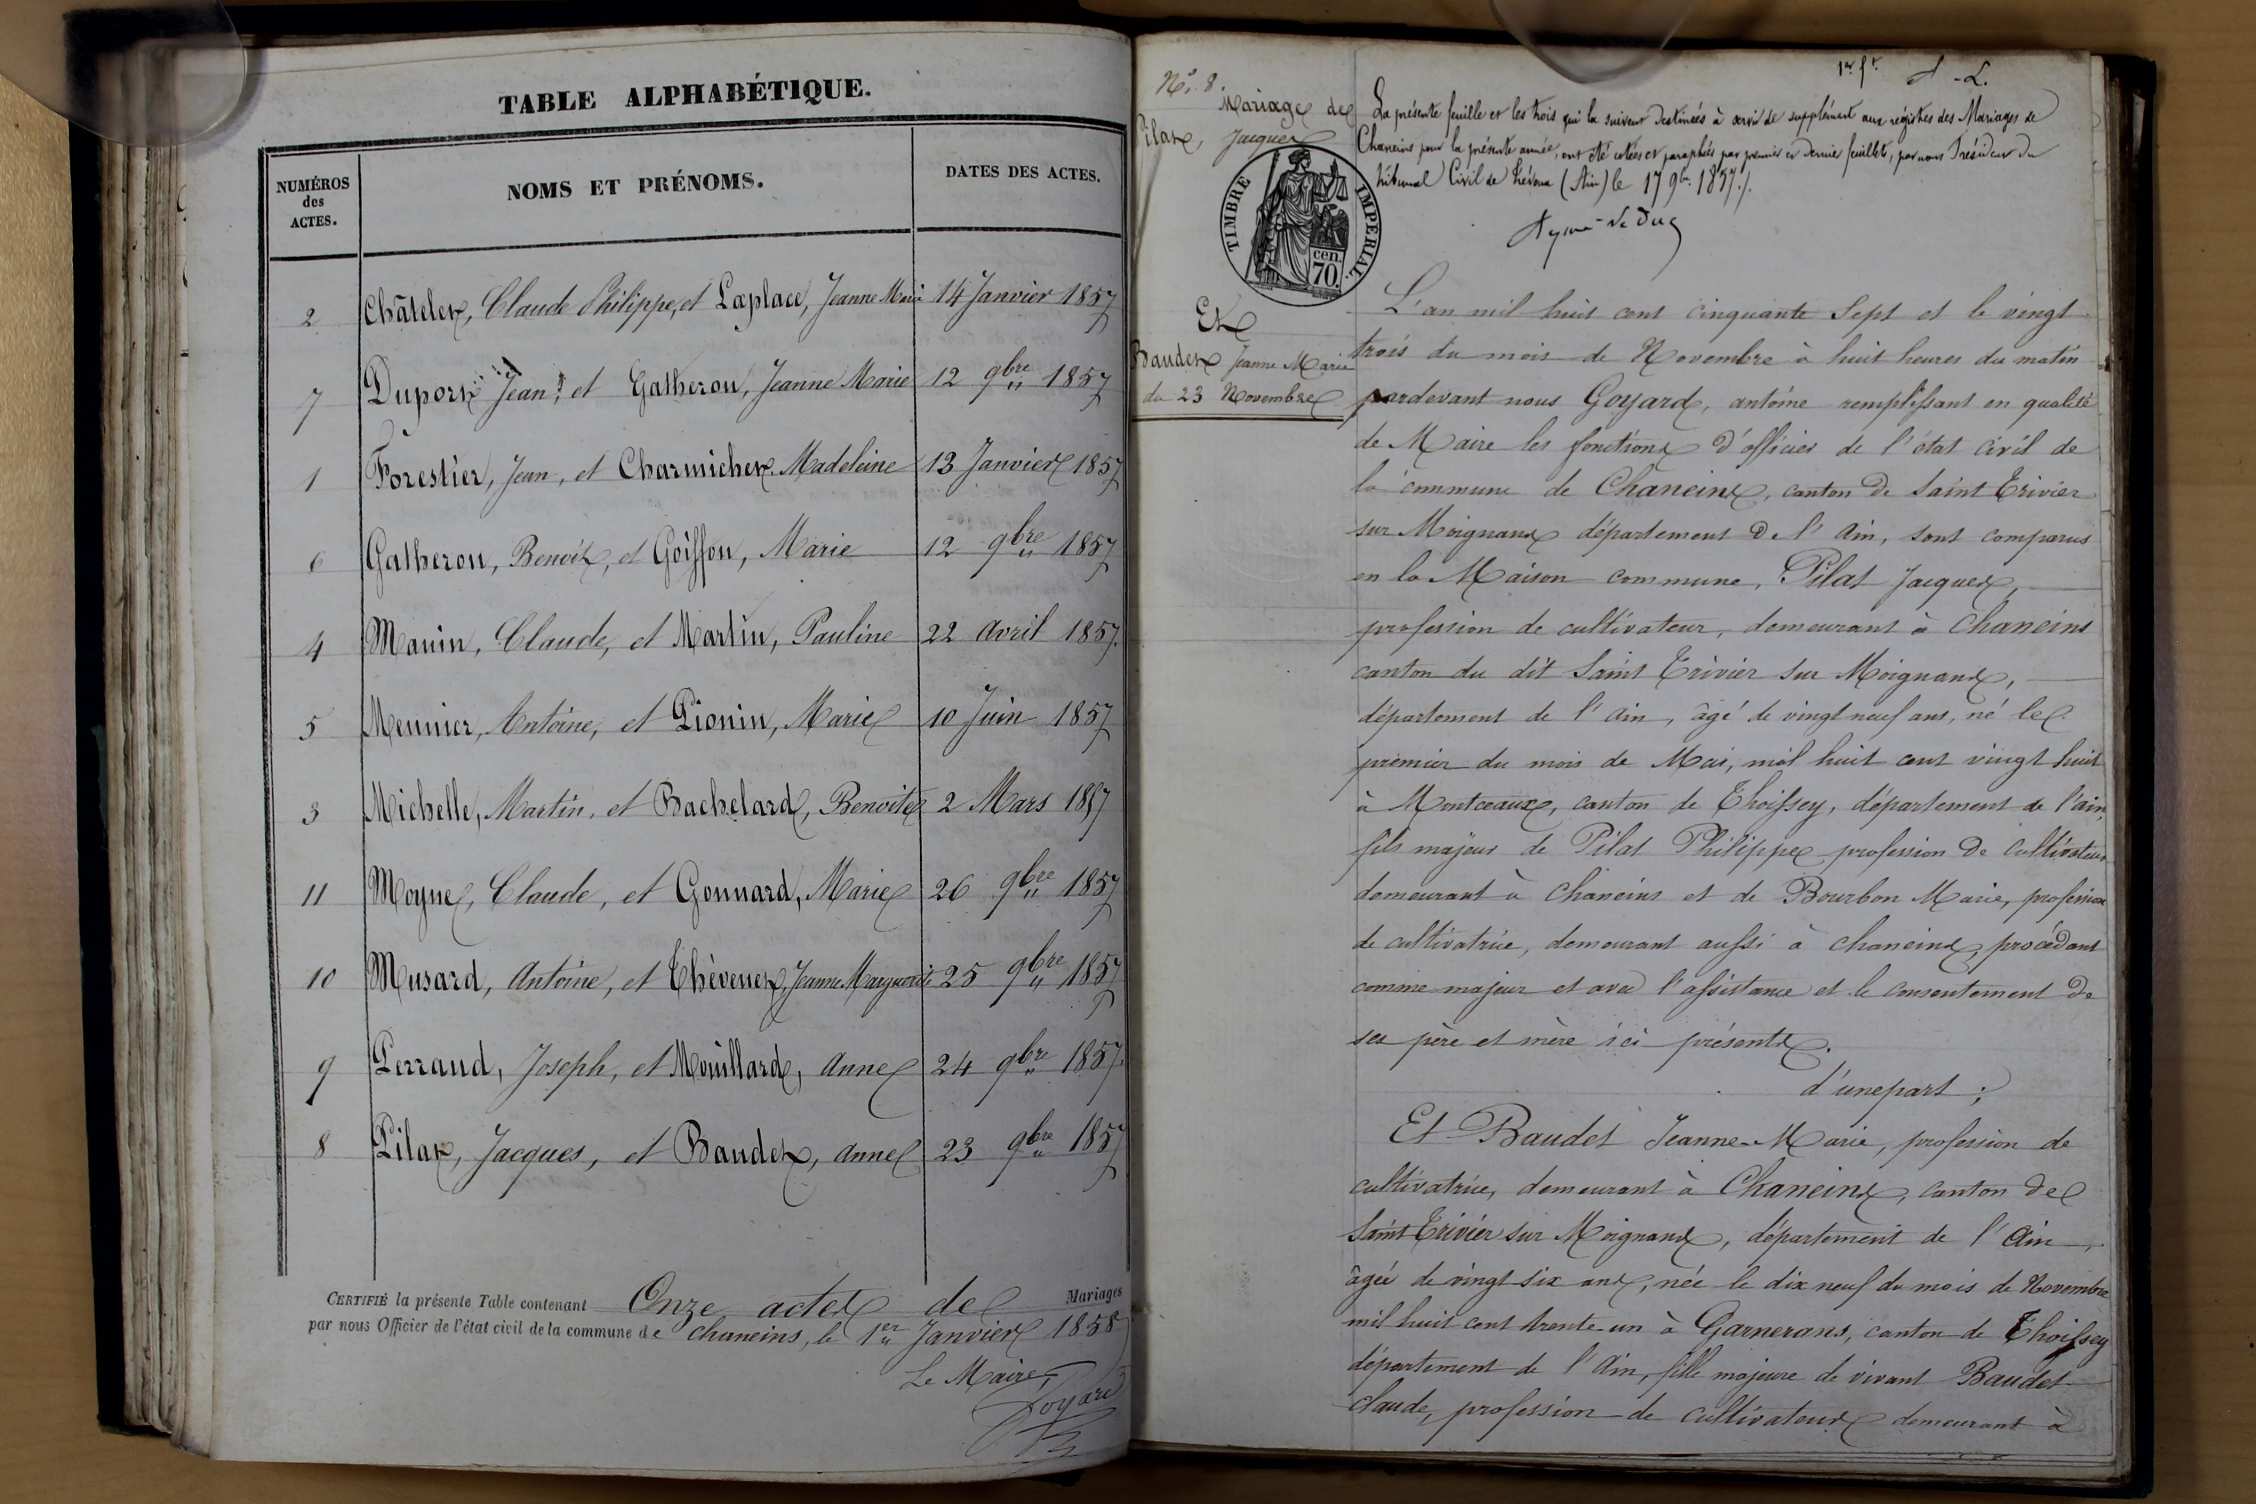 TABLE ALPHABÉTIQUE.
NUMÉROS des ACTES.
NOMS ET PRÉNOMS.
DATES DES ACTES.
2 Châtelet, Claude Philippe, et Laplace, Jeanne Marie 14 Janvier 1857
7 Duport Jean, et Gatheron, Jeanne Marie 12 9bre 1857
1 Forestier, Jean, et Charmichet Madeleine 13 Janvier 1857
6 Gatheron, Benoit, et Goiffon, Marie 12 9bre 1857
4 Manin, Claude, et Martin, Pauline 22 avril 1857.
5 Meunier, Antoine, et Pionin, Marie 10 Juin 1857
3 Michelle, Martin, et Bachelard, Benoite 2 Mars 1857
11 Moyne, Claude, et Gonnard, Marie 26 9bre 1857
10 Musard, Antoine, et Thèvenet, Jeanne Marguerite 25 9bre 1857
9 Perraud, Joseph, et Mouillard, anne 24 9bre 1857.
8 Pilat, Jacques, et Baudet, anne 23 9bre 1857
CERTIFIÉ la présente Table contenant Onze actes de Mariages
par nous Officier de l'état civil de la commune de chaneins, le 1er Janvier 1858
Le Maire,
Goyard
No. 8.
Mariage de
Pilat, Jacques
TIMBRE IMPÉRIAL.
cen. 70.
Et
Baudet Jeanne Marie
du 23 Novembre
1er ft. A - L.
La présente feuille et les trois qui la suivent destinées à servir de supplément aux régistres des Mariages de
Chaneins pour la présente année, ont été cotées et paraphées par premier et dernier feuillets, par nous Président du
tribunal Civil de Trévoux (Ain) le 17 9bre 1857./.
L'an mil huit cent cinquante Sept et le vingt
trois du mois de Novembre à huit heures du matin
pardevant nous Goyard, antoine remplissant en qualité
de Maire les fonctions d'officier de l'état civil de
la commune de Chaneins, canton de Saint Trivier
sur Moignans département de l'Ain, sont comparus
en la Maison commune, Pilat Jacques,
profession de cultivateur, demeurant à Chaneins
canton du dit Saint Trivier sur Moignans,
département de l'ain, âgé de vingt neuf ans, né le
premier du mois de Mai, mil huit cent vingt huit
à Montceaux, canton de Thoissey, département de l'ain,
fils majeur de Pilat Philippe profession de cultivateur
demeurant à Chaneins et de Bourbon Marie, profession
de cultivatrice, demeurant aussi à chaneins, procédant
comme majeur et avec l'assistance et le consentement de
ses père et mère ici présents.
d'une part;
Et Baudet Jeanne-Marie, profession de
cultivatrice, demeurant à Chaneins, canton de
Saint Trivier sur Moignans, département de l'Ain,
âgée de vingt six ans, née le dix neuf du mois de Novembre
mil huit cent trente-un à Garnerans, canton de Thoissey
département de l'Ain, fille majeure de vivant Baudet
claude, profession de cultivateur demeurant à